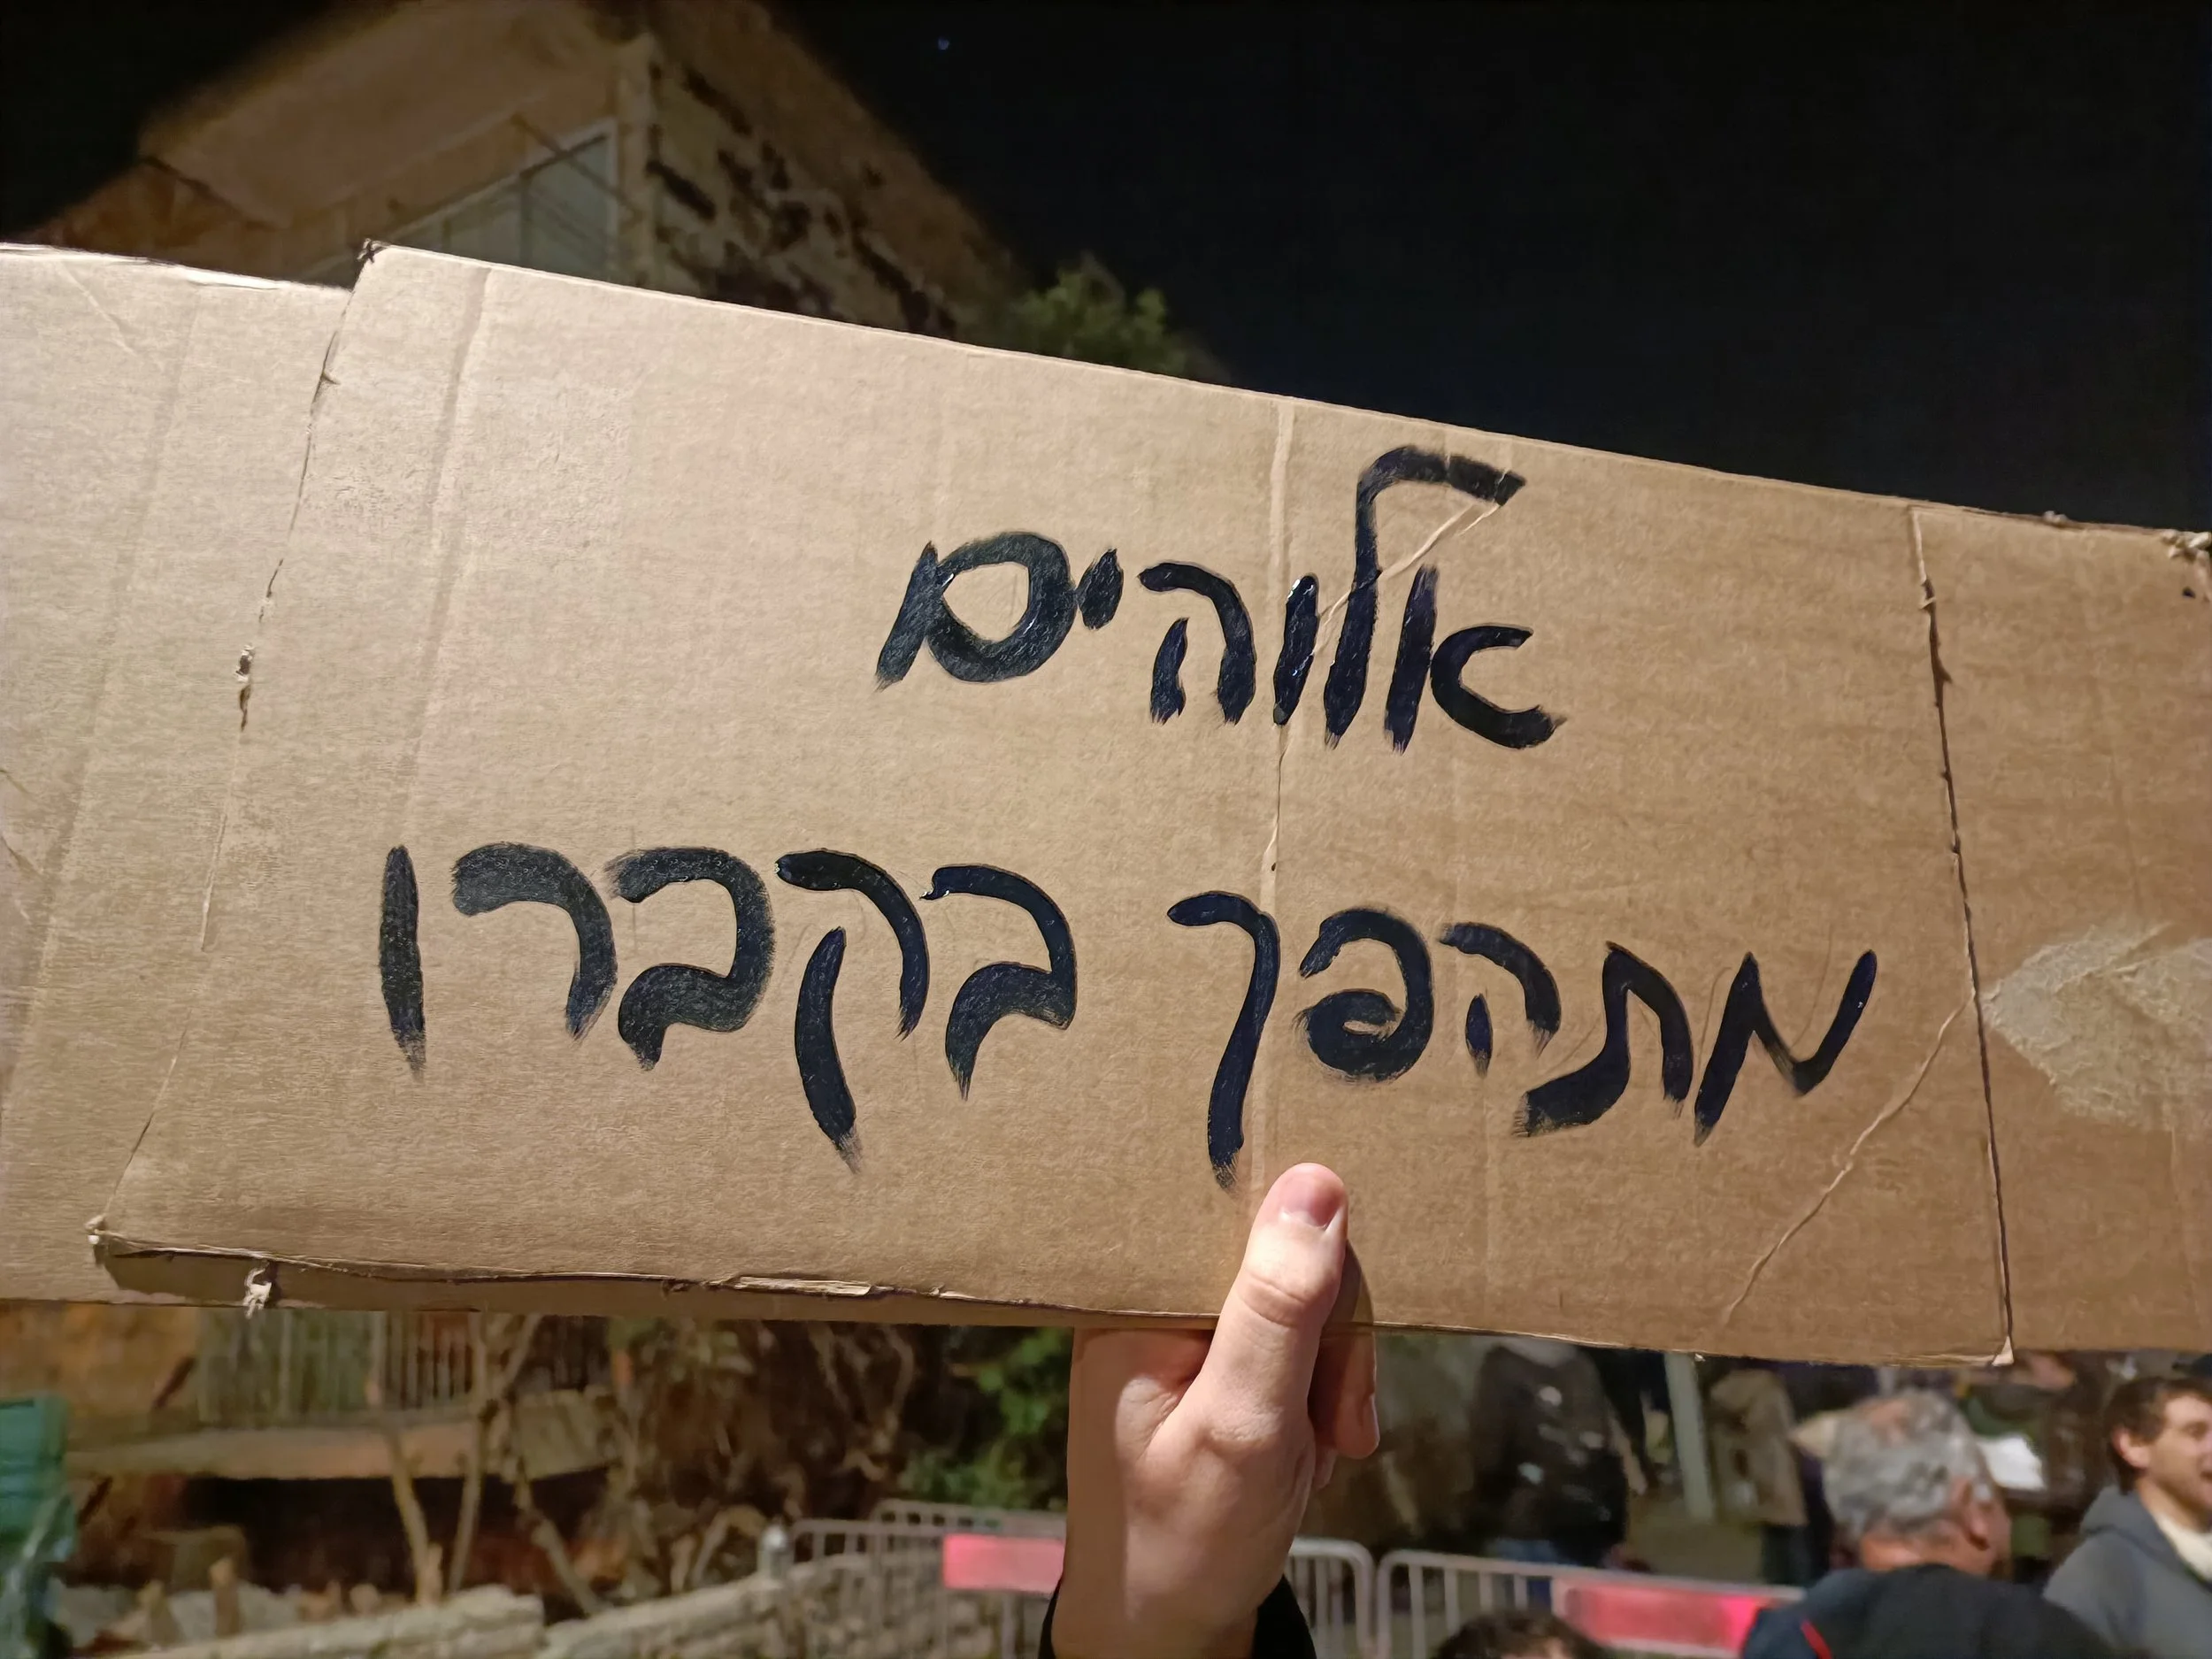 אלוהים
מתהפך בקברו